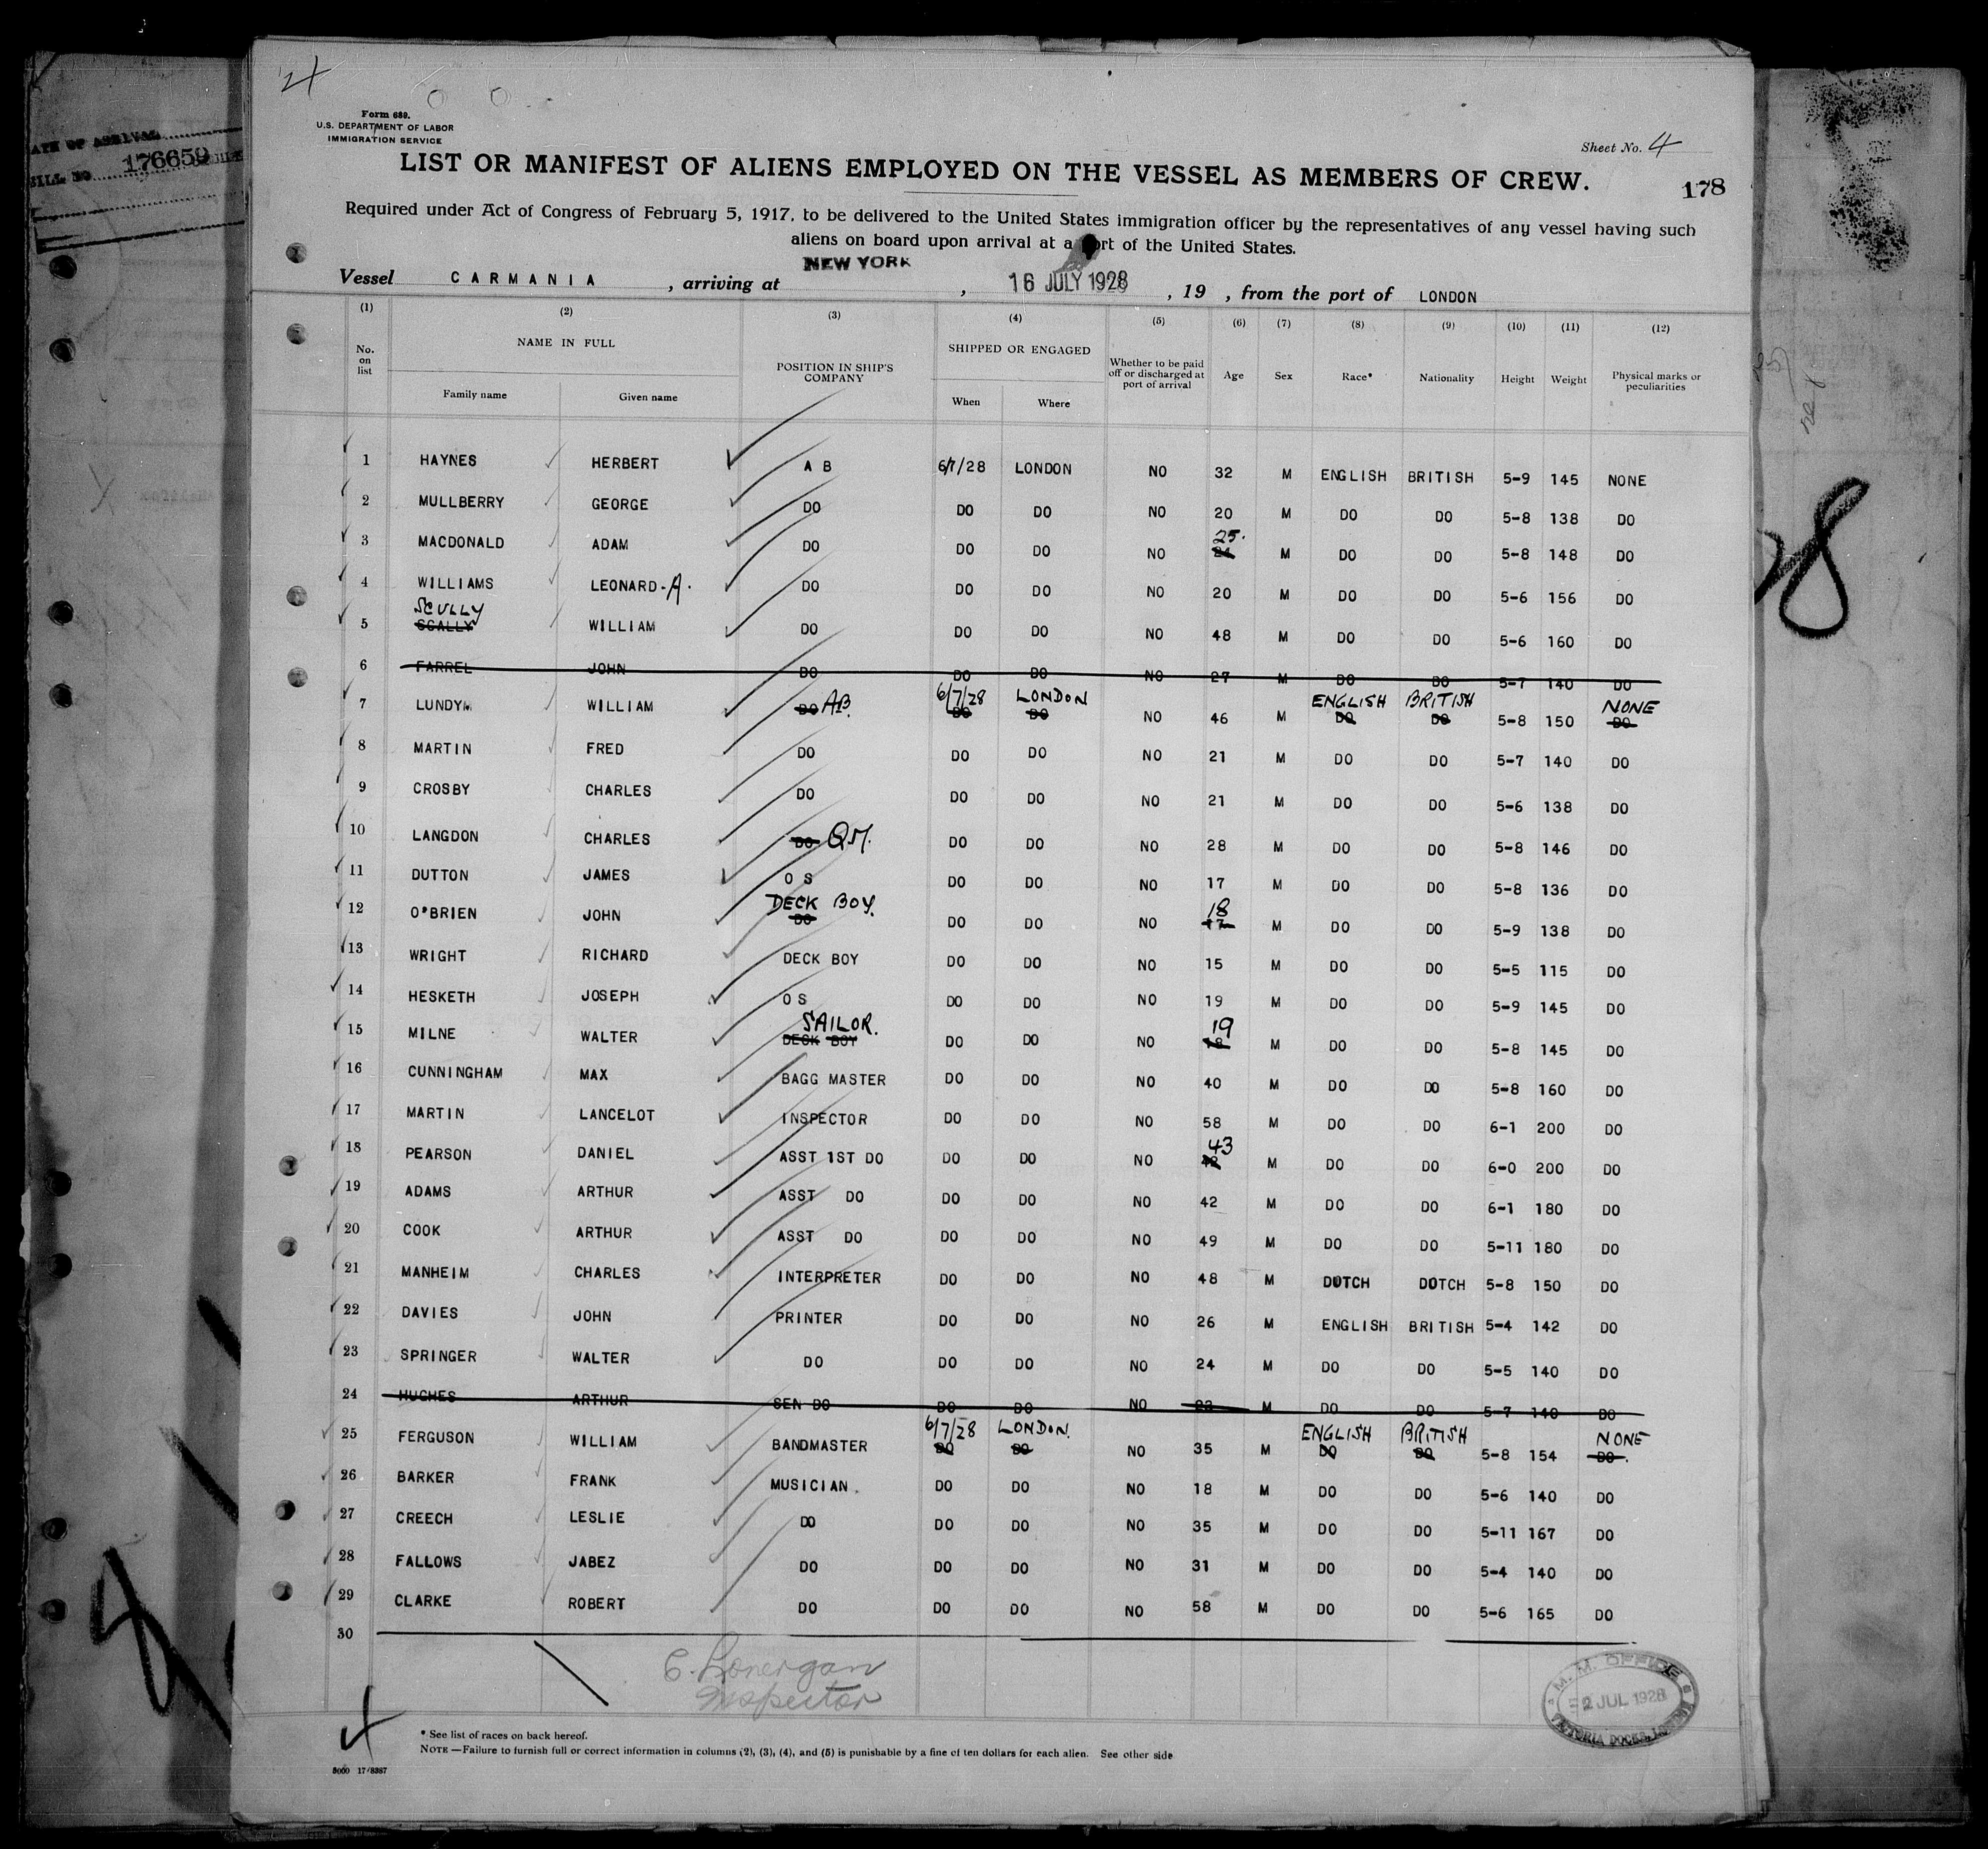 Form 689.
U.S. DEPARTMENT OF LABOR
IMMIGRATION SERVICE
176659
Sheet No. 4
LIST OR MANIFEST OF ALIENS EMPLOYED ON THE VESSEL AS MEMBERS OF CREW.
178
Required under Act of Congress of February 5, 1917, to be delivered to the United States immigration officer by the representatives of any vessel having such
aliens on board upon arrival at a port of the United States.
Vessel CARMANIA , arriving at NEW YORK , 16 JULY 1928 , 19 , from the port of LONDON
(1) (2) (3) (4) (5) (6) (7) (8) (9) (10) (11) (12)
No. on list NAME IN FULL Family name Given name POSITION IN SHIP'S COMPANY SHIPPED OR ENGAGED When Where Whether to be paid off or discharged at port of arrival Age Sex Race* Nationality Height Weight Physical marks or peculiarities
1 HAYNES HERBERT A B 6/7/28 LONDON NO 32 M ENGLISH BRITISH 5-9 145 NONE
2 MULLBERRY GEORGE DO DO DO NO 20 M DO DO 5-8 138 DO
3 MACDONALD ADAM DO DO DO NO 25. M DO DO 5-8 148 DO
4 WILLIAMS LEONARD-A. DO DO DO NO 20 M DO DO 5-6 156 DO
5 SCULLY SCALLY WILLIAM DO DO DO NO 48 M DO DO 5-6 160 DO
6 FARREL JOHN DO DO DO NO 27 M DO DO 5-7 140 DO
7 LUNDY WILLIAM DO AB. 6/7/28 DO LONDON DO NO 46 M ENGLISH DO BRITISH DO 5-8 150 NONE DO
8 MARTIN FRED DO DO DO NO 21 M DO DO 5-7 140 DO
9 CROSBY CHARLES DO DO DO NO 21 M DO DO 5-6 138 DO
10 LANGDON CHARLES DO QM. DO DO NO 28 M DO DO 5-8 146 DO
11 DUTTON JAMES O S DO DO NO 17 M DO DO 5-8 136 DO
12 O'BRIEN JOHN DECK BOY. DO DO DO NO 18 17 M DO DO 5-9 138 DO
13 WRIGHT RICHARD DECK BOY DO DO NO 15 M DO DO 5-5 115 DO
14 HESKETH JOSEPH O S DO DO NO 19 M DO DO 5-9 145 DO
15 MILNE WALTER SAILOR. DECK BOY DO DO NO 19 18 M DO DO 5-8 145 DO
16 CUNNINGHAM MAX BAGG MASTER DO DO NO 40 M DO DO 5-8 160 DO
17 MARTIN LANCELOT INSPECTOR DO DO NO 58 M DO DO 6-1 200 DO
18 PEARSON DANIEL ASST 1ST DO DO DO NO 43 M DO DO 6-0 200 DO
19 ADAMS ARTHUR ASST DO DO DO NO 42 M DO DO 6-1 180 DO
20 COOK ARTHUR ASST DO DO DO NO 49 M DO DO 5-11 180 DO
21 MANHEIM CHARLES INTERPRETER DO DO NO 48 M DUTCH DUTCH 5-8 150 DO
22 DAVIES JOHN PRINTER DO DO NO 26 M ENGLISH BRITISH 5-4 142 DO
23 SPRINGER WALTER DO DO DO NO 24 M DO DO 5-5 140 DO
24 HUGHES ARTHUR SEN DO DO DO NO 23 M DO DO 5-7 140 DO
25 FERGUSON WILLIAM BANDMASTER 6/7/28 DO LONDON. DO NO 35 M ENGLISH DO BRITISH DO 5-8 154 NONE DO.
26 BARKER FRANK MUSICIAN. DO DO NO 18 M DO DO 5-6 140 DO
27 CREECH LESLIE DO DO DO NO 35 M DO DO 5-11 167 DO
28 FALLOWS JABEZ DO DO DO NO 31 M DO DO 5-4 140 DO
29 CLARKE ROBERT DO DO DO NO 58 M DO DO 5-6 165 DO
30
C. Lonergan
Inspector
M. M. OFFICE
2 JUL 1928
VICTORIA DOCKS,
* See list of races on back hereof.
NOTE —Failure to furnish full or correct information in columns (2), (3), (4), and (5) is punishable by a fine of ten dollars for each alien. See other side